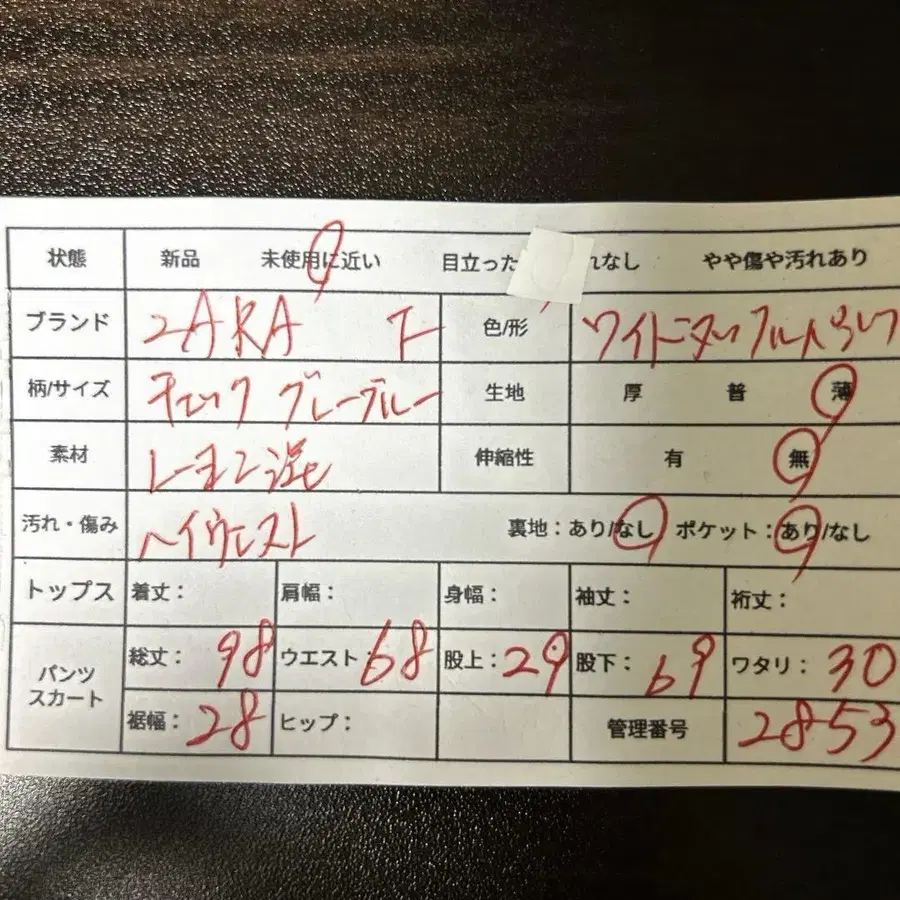 状態 新品 未使用に近い 目立った れなし やや傷や汚れあり
ブランド ZARA 色/形
柄/サイズ チェック グレーブルー 生地 厚 普 薄
素材 レーヨン混 伸縮性 有 無
汚れ・傷み ヘイウエスト 裏地:あり/なし ポケット:あり/なし
トップス 着丈: 肩幅: 身幅: 袖丈: 裄丈:
パンツ スカート 総丈: 98 ウエスト: 68 股上: 29 股下: 69 ワタリ: 30
裾幅: 28 ヒップ: 管理番号 2853